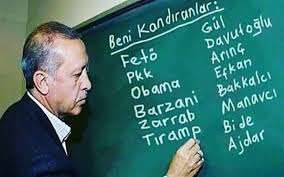 Beni Kandıranlar:
Fetö
Pkk
Obama
Barzani
Zarrab
Tiramp
Gül
Davutoğlu
Arınç
Efkan
Bakkalcı
Manavcı
Bide
Ajdar